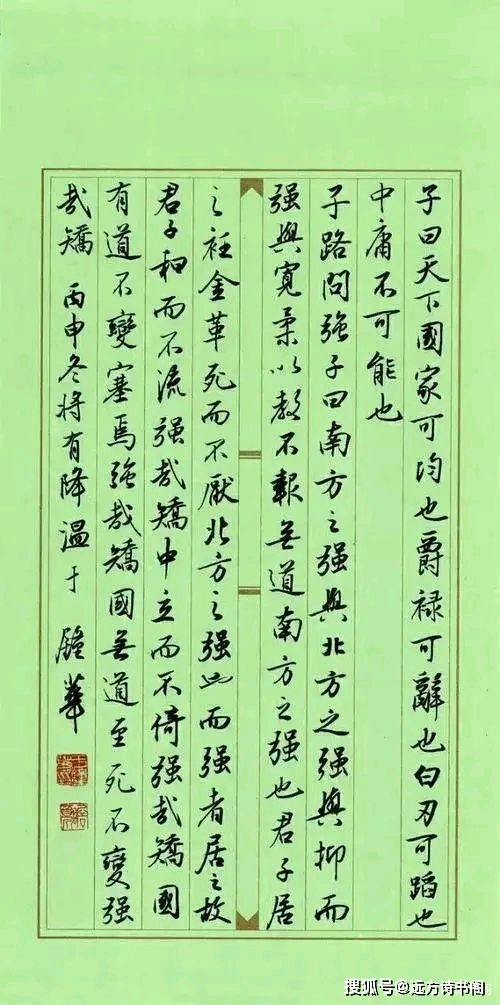 子曰天下國家可均也爵禄可辭也白刃可蹈也
中庸不可能也
子路問强子曰南方之强與北方之强與抑而
强與寬柔以教不報無道南方之强也君子居
之衽金革死而不厭北方之强也而强者居之故
君子和而不流强哉矯中立而不倚强哉矯國
有道不變塞焉强哉矯國無道至死不變强
哉矯 丙申冬將有降溫于 華
搜狐号@远方诗书阁